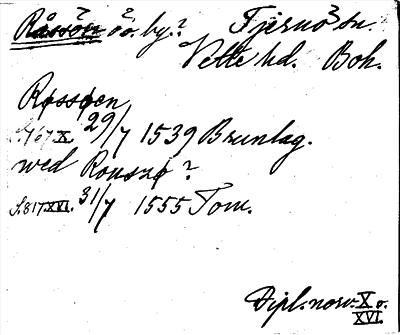 Råssön öo. by.? Tjernö 3 sn.
Vette hd. Boh.
Røssøen
S. 767 X. 29/7 1539 Brunlag.
wed Rouszø?
S. 817 XVI. 31/7 1555 Tom.
Dipl. norv. X o.
XVI.